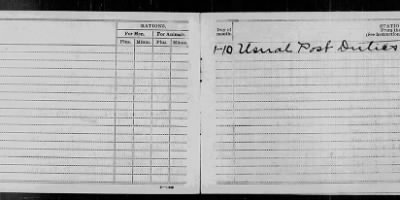 RATIONS.
For Men. For Animals.
Plus. Minus. Plus. Minus.
Day of month.
STATIO
From the
1-10 Usual Post Duties